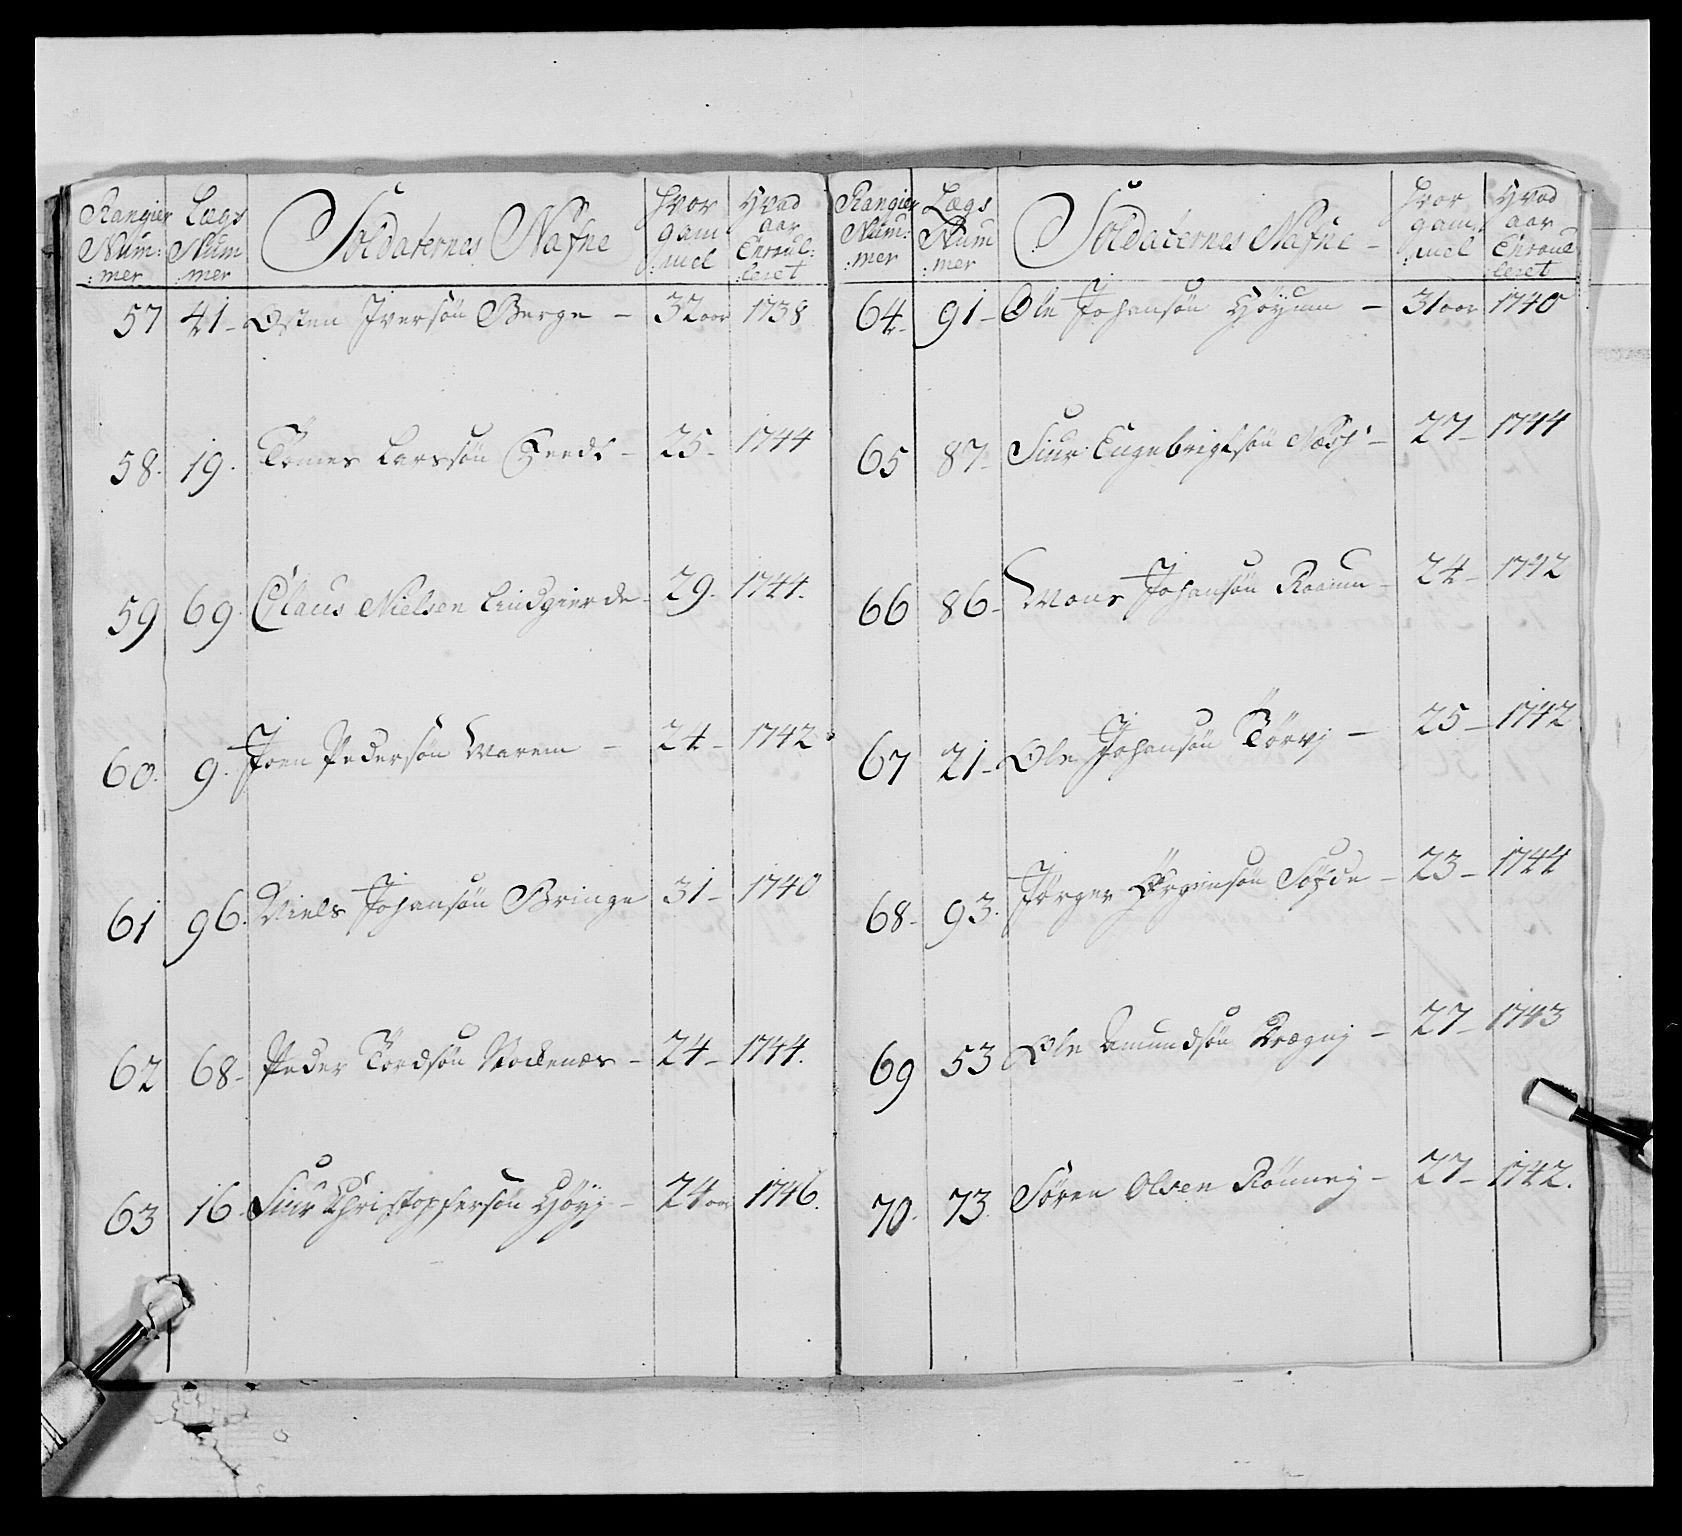 Rangier Num: :mer
Lægs Num :mer
Soldaternes Nafne
Hvor gam :mel
Hvad aar Enroul: :leret
57 41 - Østen Iversön Berge - 32 aar 1738
58. 19. Tomes Larssön - 25 - 1744
59 69. Claus Nielsen Lindgierde - 29. 1744.
60. 9. Joen Pedersön Warem - 24 - 1742
61 96. Niels Johansön Bringe 31 - 1740
62 68 - Peder Tordsön Nockenæs - 24 - 1744.
63 16. Siur Christophersön Höyj - 24 aar 1746.
Rangier Num: :mer
Lægs Num :mer
Soldaternes Nafne -
Hvor gam :mel
Hvad aar Enroul :leret
64 - 91 - Ole Johansön Höyum - 31 aar 1740
65 87 - Siur Engebrigtsön - 27 - 1744
66 86 - Mons Johansön Raaum - 24 - 1742
67 21 - Ole Johansön Törvj - 25 - 1742
68 - 93. Jörgen Jörgensön - 23 - 1744
69 53 Ole Amundsön - 27 - 1743
70. 73. Sören Olsen Rönnej - 27 - 1742.